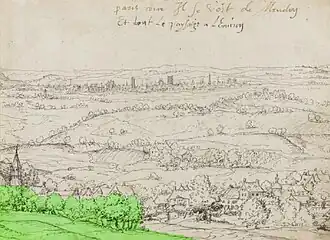 paris vün Il se voit de Meudon
Et tout le païsage a l'Environ